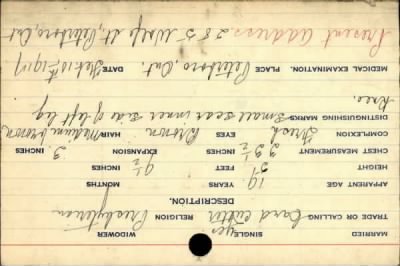 MARRIED SINGLE yes WIDOWER
TRADE OR CALLING Card cutter RELIGION Presbyterian
DESCRIPTION.
APPARENT AGE 19 YEARS 9½ MONTHS
HEIGHT 5' FEET INCHES
CHEST MEASUREMENT 33½ INCHES EXPANSION 3 INCHES
COMPLEXION Fresh EYES Brown HAIR Medium brown
DISTINGUISHING MARKS Small scar inner side of left leg
Knee.
MEDICAL EXAMINATION. PLACE Peterboro, Ont. DATE Feb 10th 1917
Present address 285 Wolfe St, Peterboro, Ont